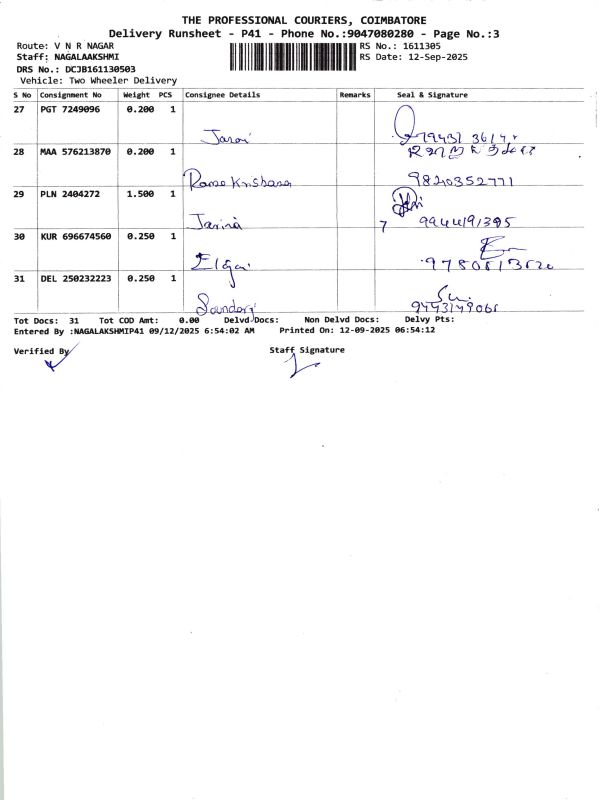 THE PROFESSIONAL COURIERS, COIMBATORE
Delivery Runsheet - P41 - Phone No.:9047080280 - Page No.:3
Route: V N R NAGAR RS No.: 1611305
Staff: NAGALAAKSHMI RS Date: 12-Sep-2025
DRS No.: DCJB161130503
Vehicle: Two Wheeler Delivery
S No Consignment No Weight PCS Consignee Details Remarks Seal & Signature
27 PGT 7249096 0.200 1
28 MAA 576213870 0.200 1
Rama Krishana 9820352771
29 PLN 2404272 1.500 1
9944191395
30 KUR 696674560 0.250 1
31 DEL 250232223 0.250 1
Sundari 9443149061
Tot Docs: 31 Tot COD Amt: 0.00 Delvd Docs: Non Delvd Docs: Delvy Pts:
Entered By :NAGALAKSHMIP41 09/12/2025 6:54:02 AM Printed On: 12-09-2025 06:54:12
Verified By Staff Signature